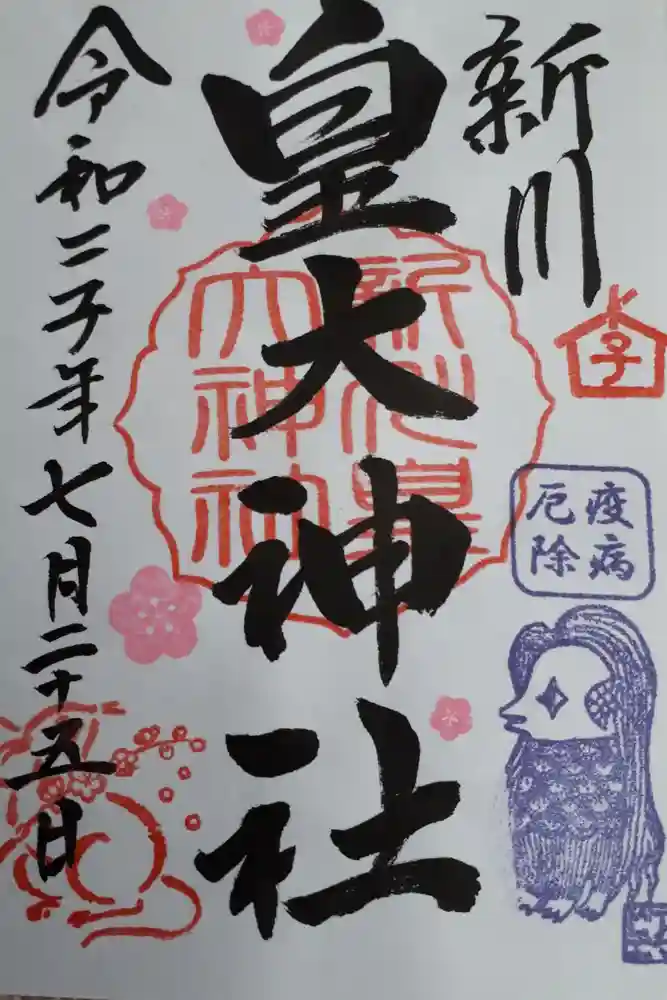 新川
皇大神社
令和二子年七月二十五日
新川皇
大神社
子
疫病
厄除